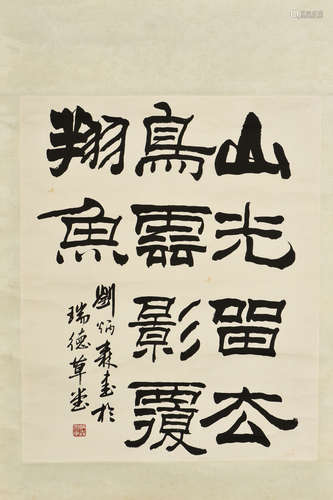 山光留去
鳥雲影覆
翔魚
劉炳森書於
瑞德草堂